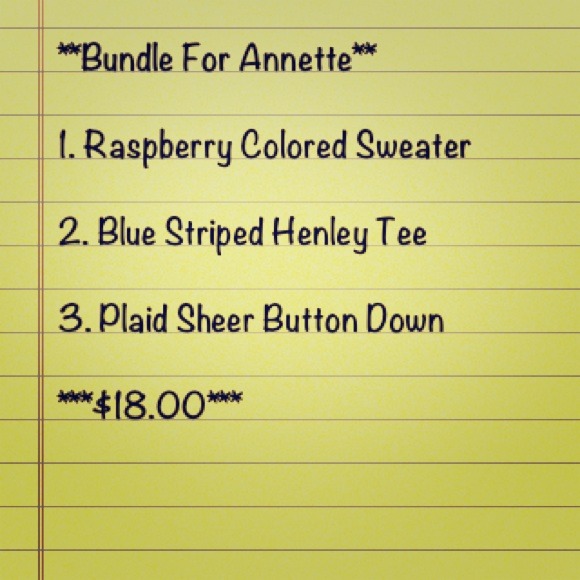 **Bundle For Annette**
1. Raspberry Colored Sweater
2. Blue Striped Henley Tee
3. Plaid Sheer Button Down
***$18.00***